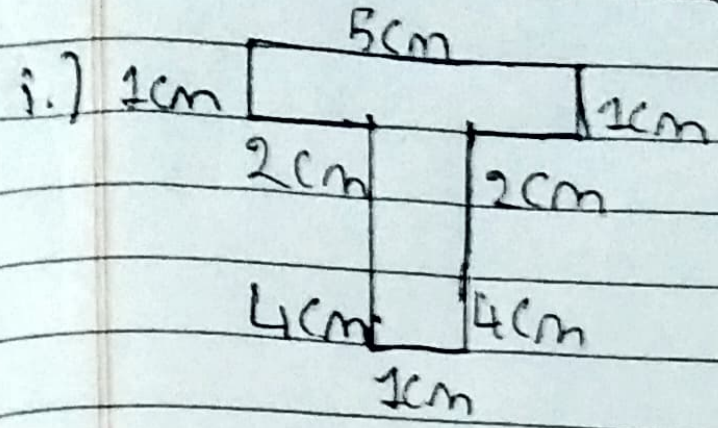 5cm
i.) 1cm 1cm
2cm 2cm
4cm 4cm
1cm